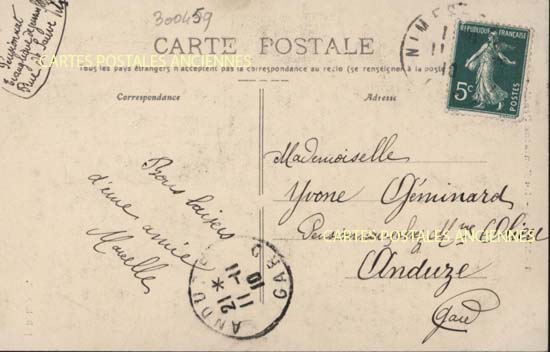 300459
Pensionnat
Evangélique de jeunes filles
Rue de Sauve
NIMES
RÉPUBLIQUE FRANÇAISE
5c
POSTES
CARTE POSTALE
CARTES POSTALES ANCIENNES
Tous les pays étrangers n'acceptent pas la correspondance au recto (se renseigner à la poste)
Correspondance
Adresse
Bons baisers
d'une amie
Marcelle
Mademoiselle
Yvone Géminard
CARTES POSTALES ANCIENNES
Anduze
Gard
ANDUZE
21 *
11-11
10
GARD